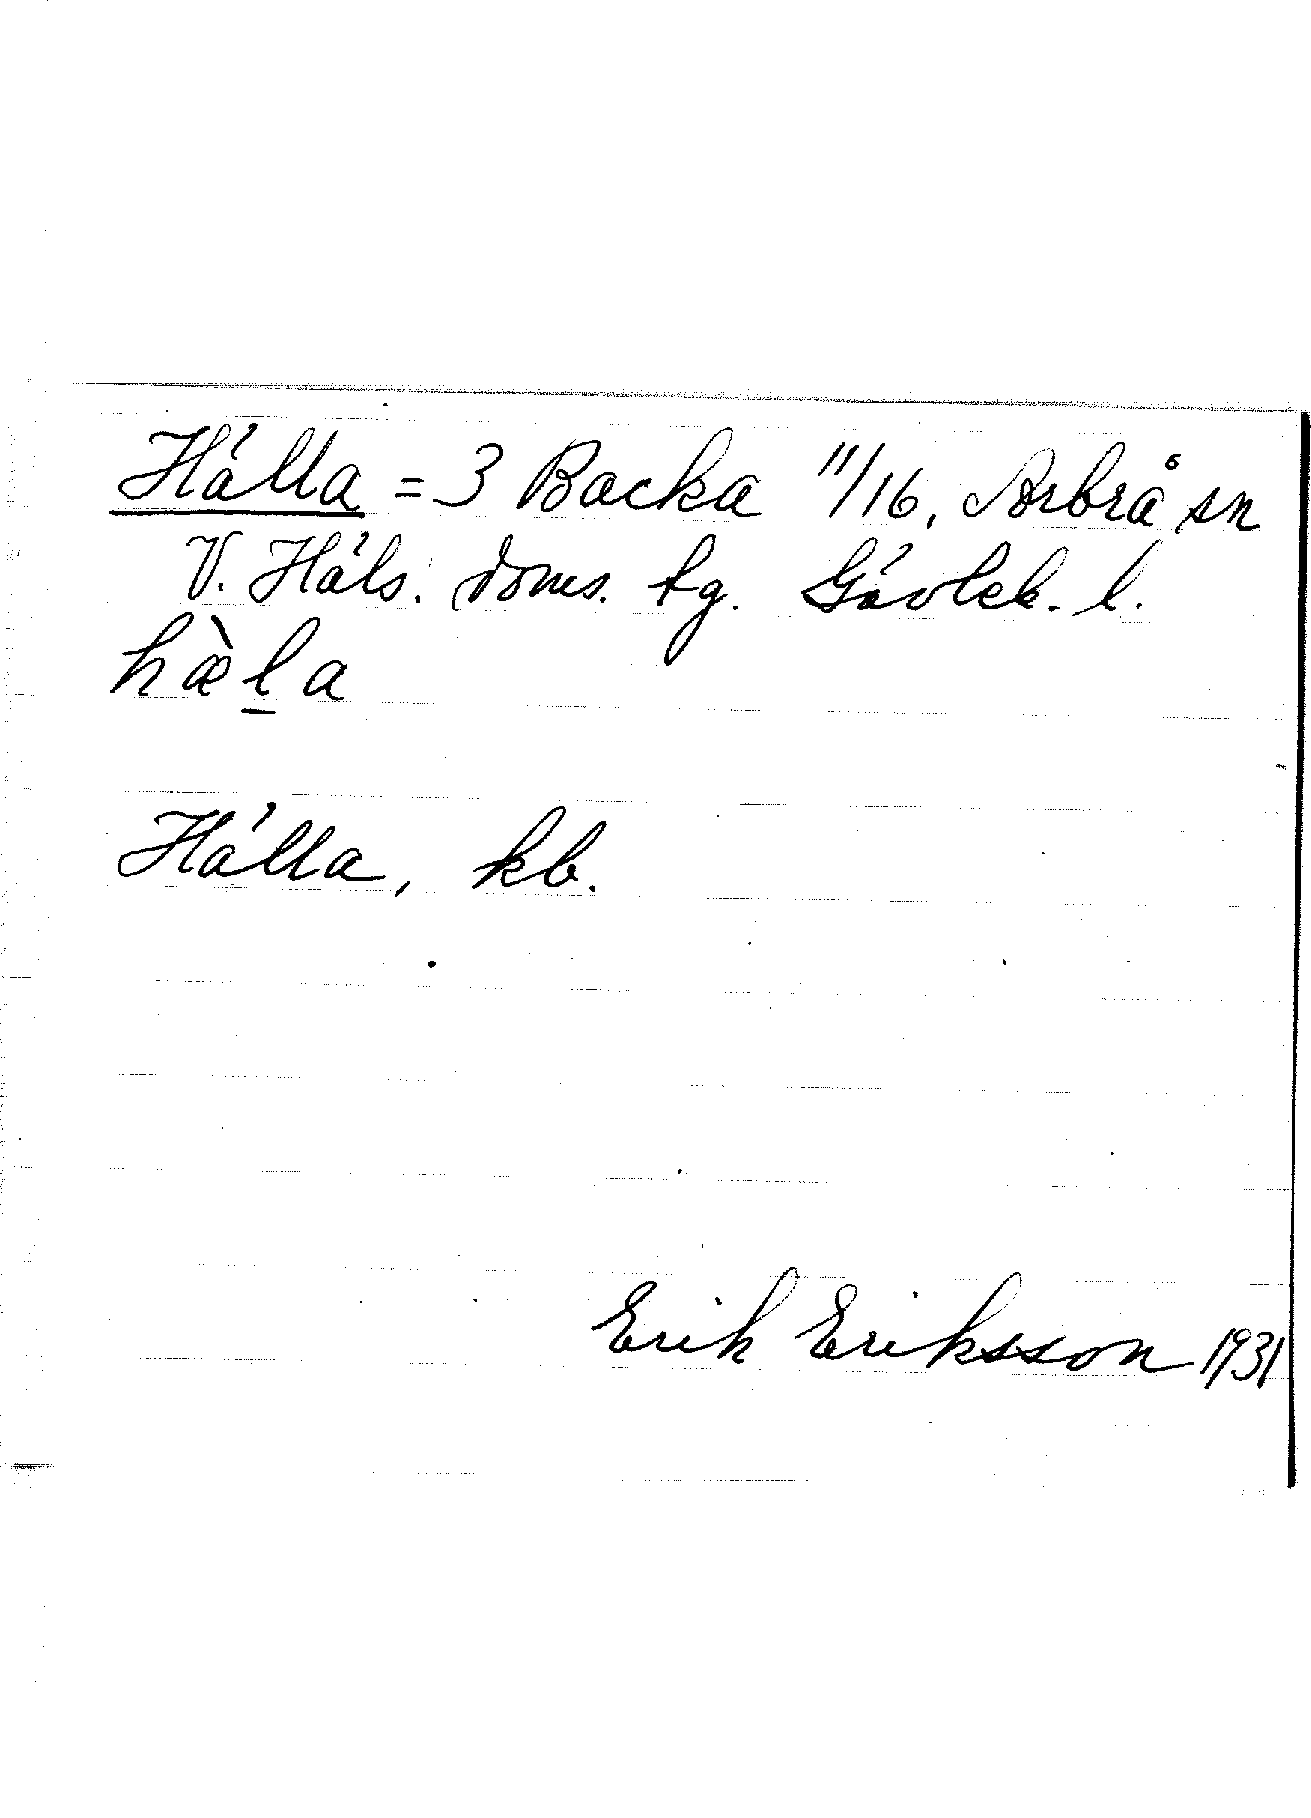 Hälla = 3 Backa 11/16, Arbrå sn
V. Häls. doms. tg. Gävleb. l.
hæ̀l̲a
Hälla, kb.
Erik Eriksson 1931